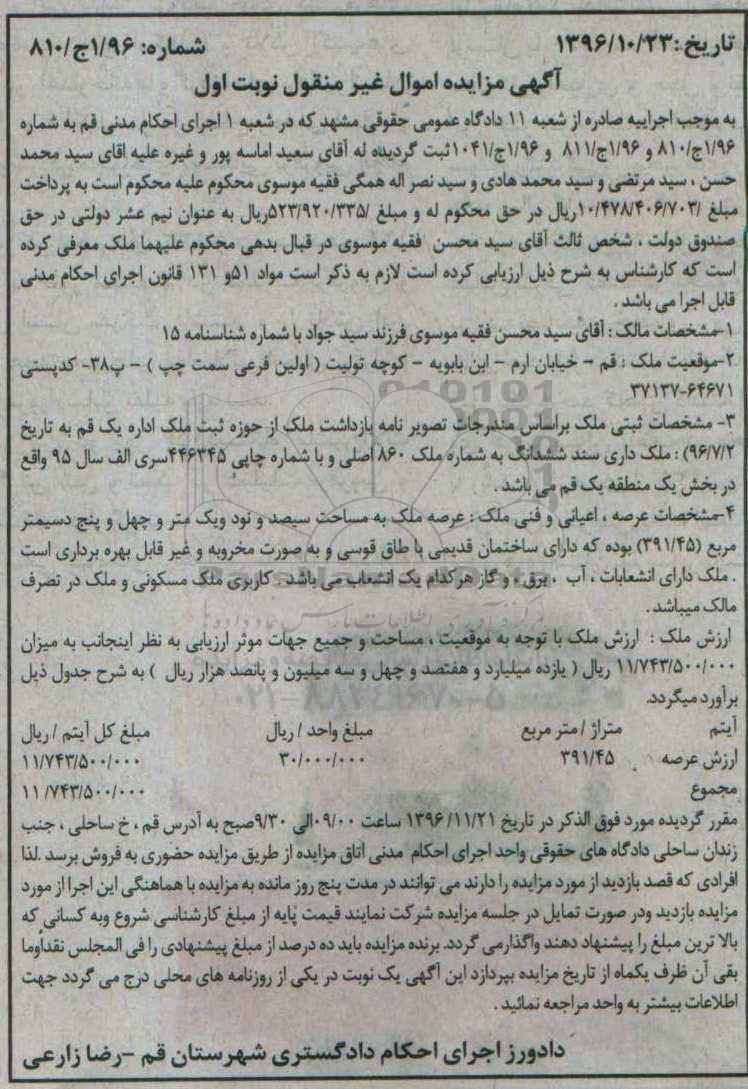 تاریخ: ۱۳۹۶/۱۰/۲۳ شماره: ۱/۹۶ج/۸۱۰
آگهی مزایده اموال غیر منقول نوبت اول
به موجب اجراییه صادره از شعبه ۱۱ دادگاه عمومی حقوقی مشهد که در شعبه ۱ اجرای احکام مدنی قم به شماره
۱/۹۶ج/۸۱۰ و ۱/۹۶ج/۸۱۱ و ۱/۹۶ج/۱۰۴۱ثبت گردیده له آقای سعید اماسه پور و غیره علیه اقای سید محمد
حسن ، سید مرتضی و سید محمد هادی و سید نصر اله همگی فقیه موسوی محکوم علیه محکوم است به پرداخت
مبلغ /۱۰/۴۷۸/۴۰۶/۷۰۳ریال در حق محکوم له و مبلغ /۵۲۳/۹۲۰/۳۳۵ریال به عنوان نیم عشر دولتی در حق
صندوق دولت ، شخص ثالث آقای سید محسن فقیه موسوی در قبال بدهی محکوم علیهما ملک معرفی کرده
است که کارشناس به شرح ذیل ارزیابی کرده است لازم به ذکر است مواد ۵۱و ۱۳۱ قانون اجرای احکام مدنی
قابل اجرا می باشد .
۱-مشخصات مالک : آقای سید محسن فقیه موسوی فرزند سید جواد با شماره شناسنامه ۱۵
۲-موقعیت ملک : قم – خیابان ارم – ابن بابویه – کوچه تولیت ( اولین فرعی سمت چپ ) – پ۳۸- کدپستی
۳۷۱۳۷-۶۴۶۷۱
۳- مشخصات ثبتی ملک براساس مندرجات تصویر نامه بازداشت ملک از حوزه ثبت ملک اداره یک قم به تاریخ
۹۶/۷/۲) : ملک داری سند ششدانگ به شماره ملک ۸۶۰ اصلی و با شماره چاپی ۴۴۶۳۴۵سری الف سال ۹۵ واقع
در بخش یک منطقه یک قم می باشد .
۴-مشخصات عرصه ، اعیانی و فنی ملک : عرصه ملک به مساحت سیصد و نود ویک متر و چهل و پنج دسیمتر
مربع (۳۹۱/۴۵) بوده که دارای ساختمان قدیمی با طاق قوسی و به صورت مخروبه و غیر قابل بهره برداری است
. ملک دارای انشعابات ، آب ، برق ، و گاز هرکدام یک انشعاب می باشد . کاربری ملک مسکونی و ملک در تصرف
مالک میباشد .
ارزش ملک : ارزش ملک با توجه به موقعیت ، مساحت و جمیع جهات موثر ارزیابی به نظر اینجانب به میزان
۱۱/۷۴۳/۵۰۰/۰۰۰ ریال ( یازده میلیارد و هفتصد و چهل و سه میلیون و پانصد هزار ریال ) به شرح جدول ذیل
برآورد میگردد.
آیتم متراژ / متر مربع مبلغ واحد / ریال مبلغ کل آیتم / ریال
ارزش عرصه ۳۹۱/۴۵ ۳۰/۰۰۰/۰۰۰ ۱۱/۷۴۳/۵۰۰/۰۰۰
مجموع ۱۱/۷۴۳/۵۰۰/۰۰۰
مقرر گردیده مورد فوق الذکر در تاریخ ۱۳۹۶/۱۱/۲۱ ساعت ۰۹/۰۰الی ۹/۳۰صبح به آدرس قم ، خ ساحلی ، جنب
زندان ساحلی دادگاه های حقوقی واحد اجرای احکام مدنی اتاق مزایده از طریق مزایده حضوری به فروش برسد .لذا
افرادی که قصد بازدید از مورد مزایده را دارند می توانند در مدت پنج روز مانده به مزایده با هماهنگی این اجرا از مورد
مزایده بازدید ودر صورت تمایل در جلسه مزایده شرکت نمایند قیمت پایه از مبلغ کارشناسی شروع وبه کسانی که
بالا ترین مبلغ را پیشنهاد دهند واگذارمی گردد. برنده مزایده باید ده درصد از مبلغ پیشنهادی را فی المجلس نقداًوما
بقی آن ظرف یکماه از تاریخ مزایده بپردازد این آگهی یک نوبت در یکی از روزنامه های محلی درج می گردد جهت
اطلاعات بیشتر به واحد مراجعه نمائید .
دادورز اجرای احکام دادگستری شهرستان قم –رضا زارعی